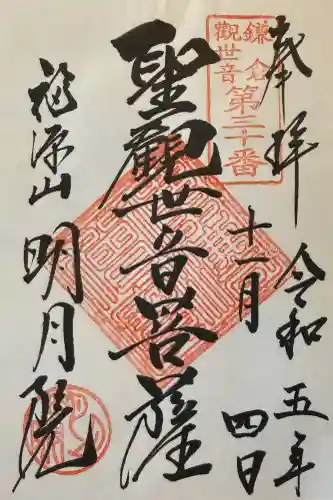 奉拝
令和五年
十一月
四日
鎌倉
觀世音
第三十番
聖觀世音菩薩
福源山
明月院